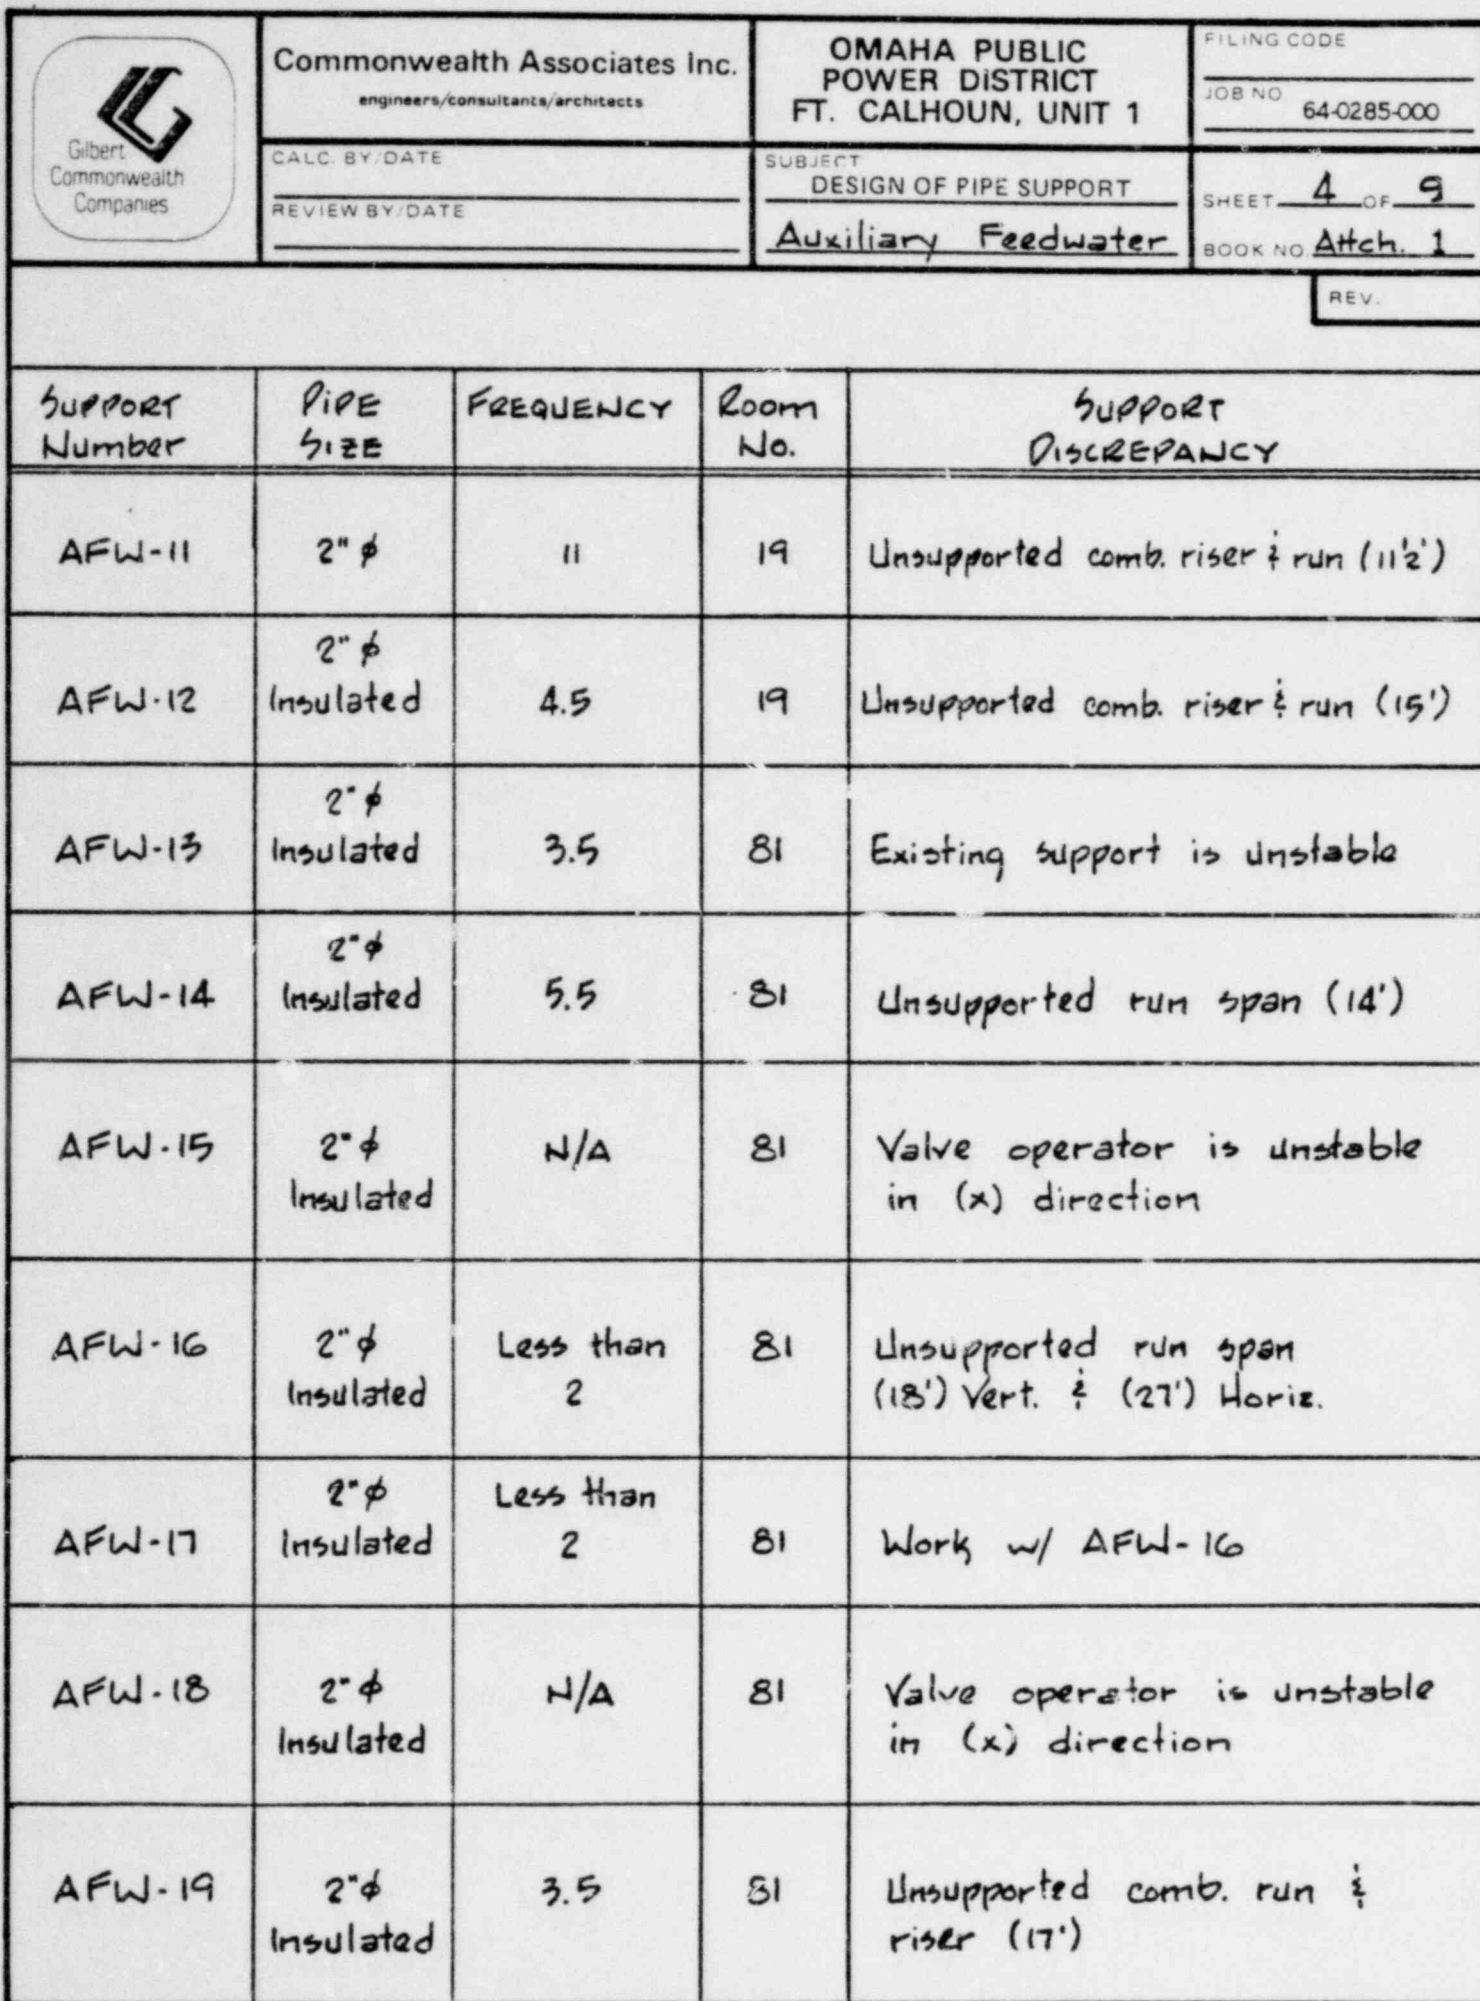 Gilbert
Commonwealth
Companies
Commonwealth Associates Inc.
engineers/consultants/architects
CALC. BY/DATE
REVIEW BY/DATE
OMAHA PUBLIC
POWER DISTRICT
FT. CALHOUN, UNIT 1
SUBJECT
DESIGN OF PIPE SUPPORT
Auxiliary Feedwater
FILING CODE
JOB NO 64-0285-000
SHEET 4 OF 9
BOOK NO. Attch. 1
REV.
SUPPORT
Number
PIPE
SIZE
FREQUENCY
Room
No.
SUPPORT
DISCREPANCY
AFW-11
2" ϕ
11
19
Unsupported comb. riser & run (11½')
AFW-12
2" ϕ
Insulated
4.5
19
Unsupported comb. riser & run (15')
AFW-13
2" ϕ
Insulated
3.5
81
Existing support is unstable
AFW-14
2" ϕ
Insulated
5.5
81
Unsupported run span (14')
AFW-15
2" ϕ
Insulated
N/A
81
Valve operator is unstable
in (x) direction
AFW-16
2" ϕ
Insulated
Less than
2
81
Unsupported run span
(18') Vert. & (27') Horiz.
AFW-17
2" ϕ
Insulated
Less than
2
81
Work w/ AFW-16
AFW-18
2" ϕ
Insulated
N/A
81
Valve operator is unstable
in (x) direction
AFW-19
2" ϕ
Insulated
3.5
81
Unsupported comb. run &
riser (17')